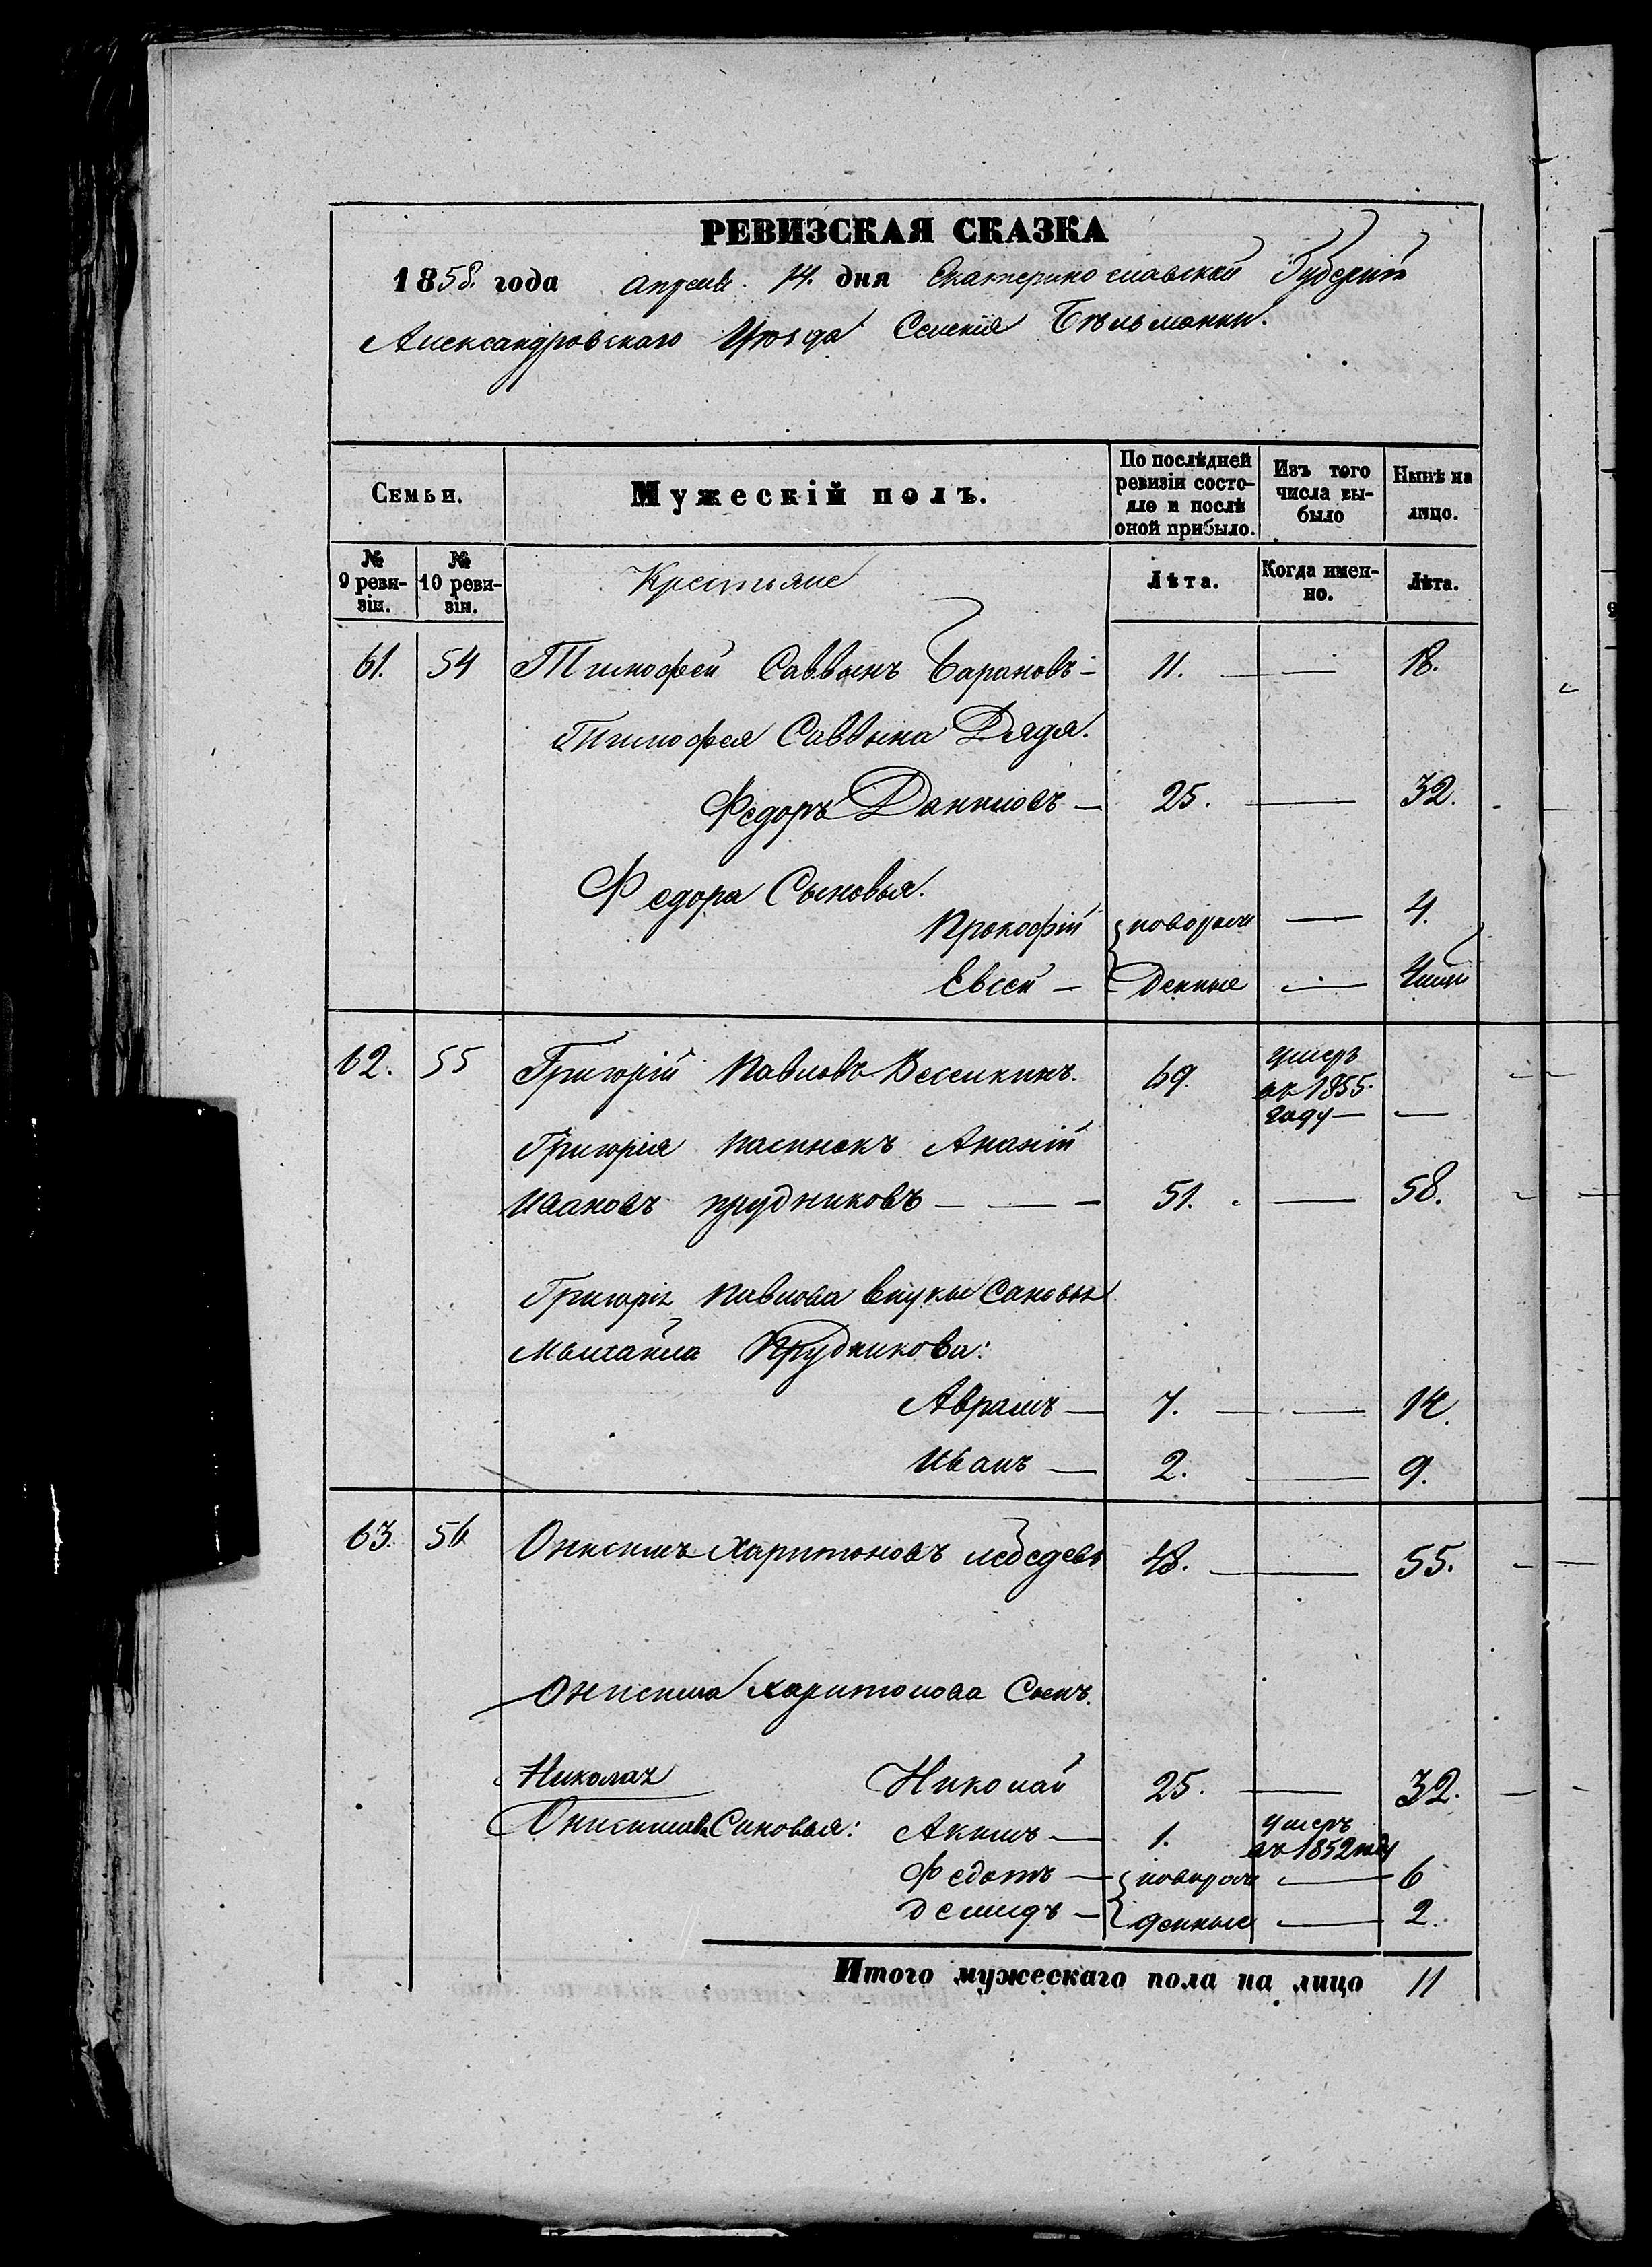 РЕВИЗСКАЯ СКАЗКА
1858. года апреля. 14. дня Екатеринославской Губерніи
Александровскаго Уѣзда Селенія Бѣльманки.
Семьи.
Мужескій полъ.
По послѣдней ревизіи состояло и послѣ оной прибыло.
Изъ того числа выбыло
Нынѣ на лицо.
№ 9 ревизіи.
№ 10 ревизіи.
Крестьяне
Лѣта.
Когда именно.
Лѣта.
61. 54 Тимофей Саввынъ Барановъ — 11. — 18.
Тимофея Саввына Дядя.
Федоръ Даниловъ — 25. — 32.
Федора Сыновья.
Прокофій новорож — 4.
Евсей — денные —
62. 55 Григорій Павловъ Веселкинъ. 69. умеръ
въ 1855.
году — —
Григорія пасынокъ Ананій
Ивановъ прудниковъ — — — 51. — 58.
Григорія Павлова внуки Сановья
Мыхайла Прудникова:
Аврамъ — 7. — 14.
Иванъ — 2. — 9.
63. 56 Онисимъ Харитоновъ лебедевъ 48. — 55.
Онисима Харитонова Сынъ.
Николай 25. — 32.
Николая
Онисимова Сыновья: Акимъ — 1. умеръ
въ 1852 году
Федотъ — новорож — 6
Демидъ — денные — 2.
Итого мужескаго пола на лицо 11